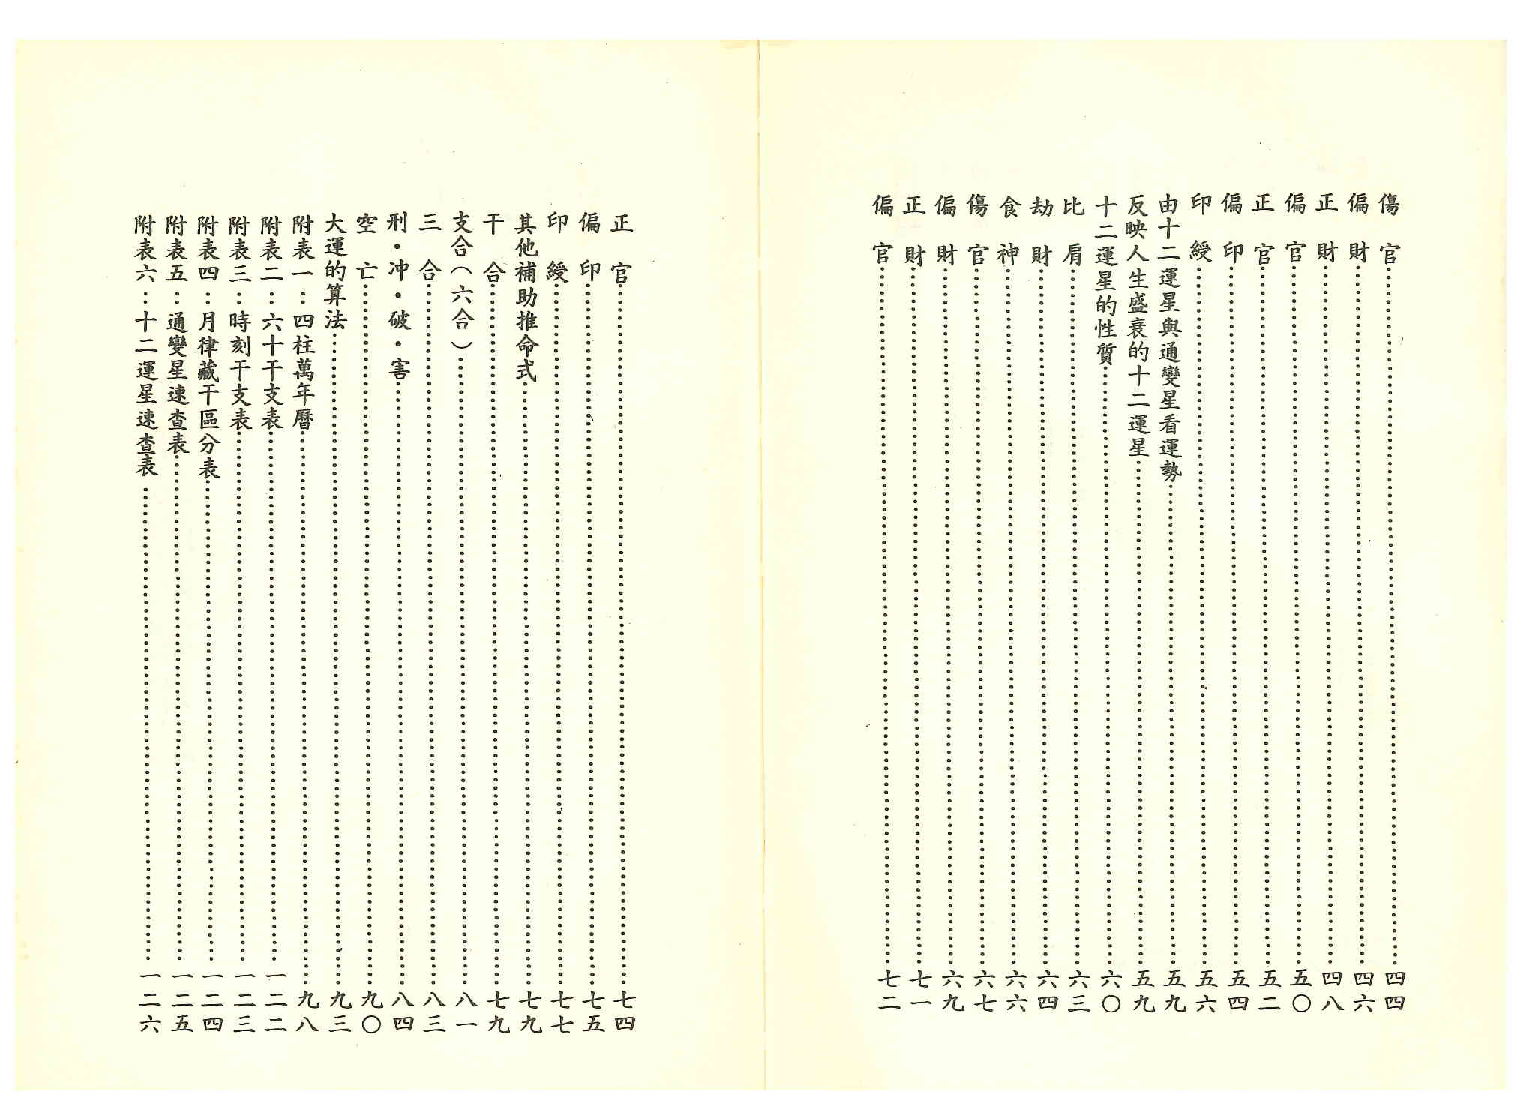 傷官……四四
偏財……四六
正財……四八
偏官……五〇
正官……五二
偏印……五四
印綬……五六
由十二運星與通變星看運勢……五九
反映人生盛衰的十二運星……五九
十二運星的性質……六〇
比肩……六三
劫財……六四
食神……六六
傷官……六七
偏財……六九
正財……七一
偏官……七二
正官……七四
偏印……七五
印綬……七七
其他補助推命式……七九
干合……七九
支合（六合）……八一
三合……八三
刑・冲・破・害……八四
空亡……九〇
大運的算法……九三
附表一：四柱萬年曆……九八
附表二：六十干支表……一二二
附表三：時刻干支表……一二三
附表四：月律藏干區分表……一二四
附表五：通變星速查表……一二五
附表六：十二運星速查表……一二六